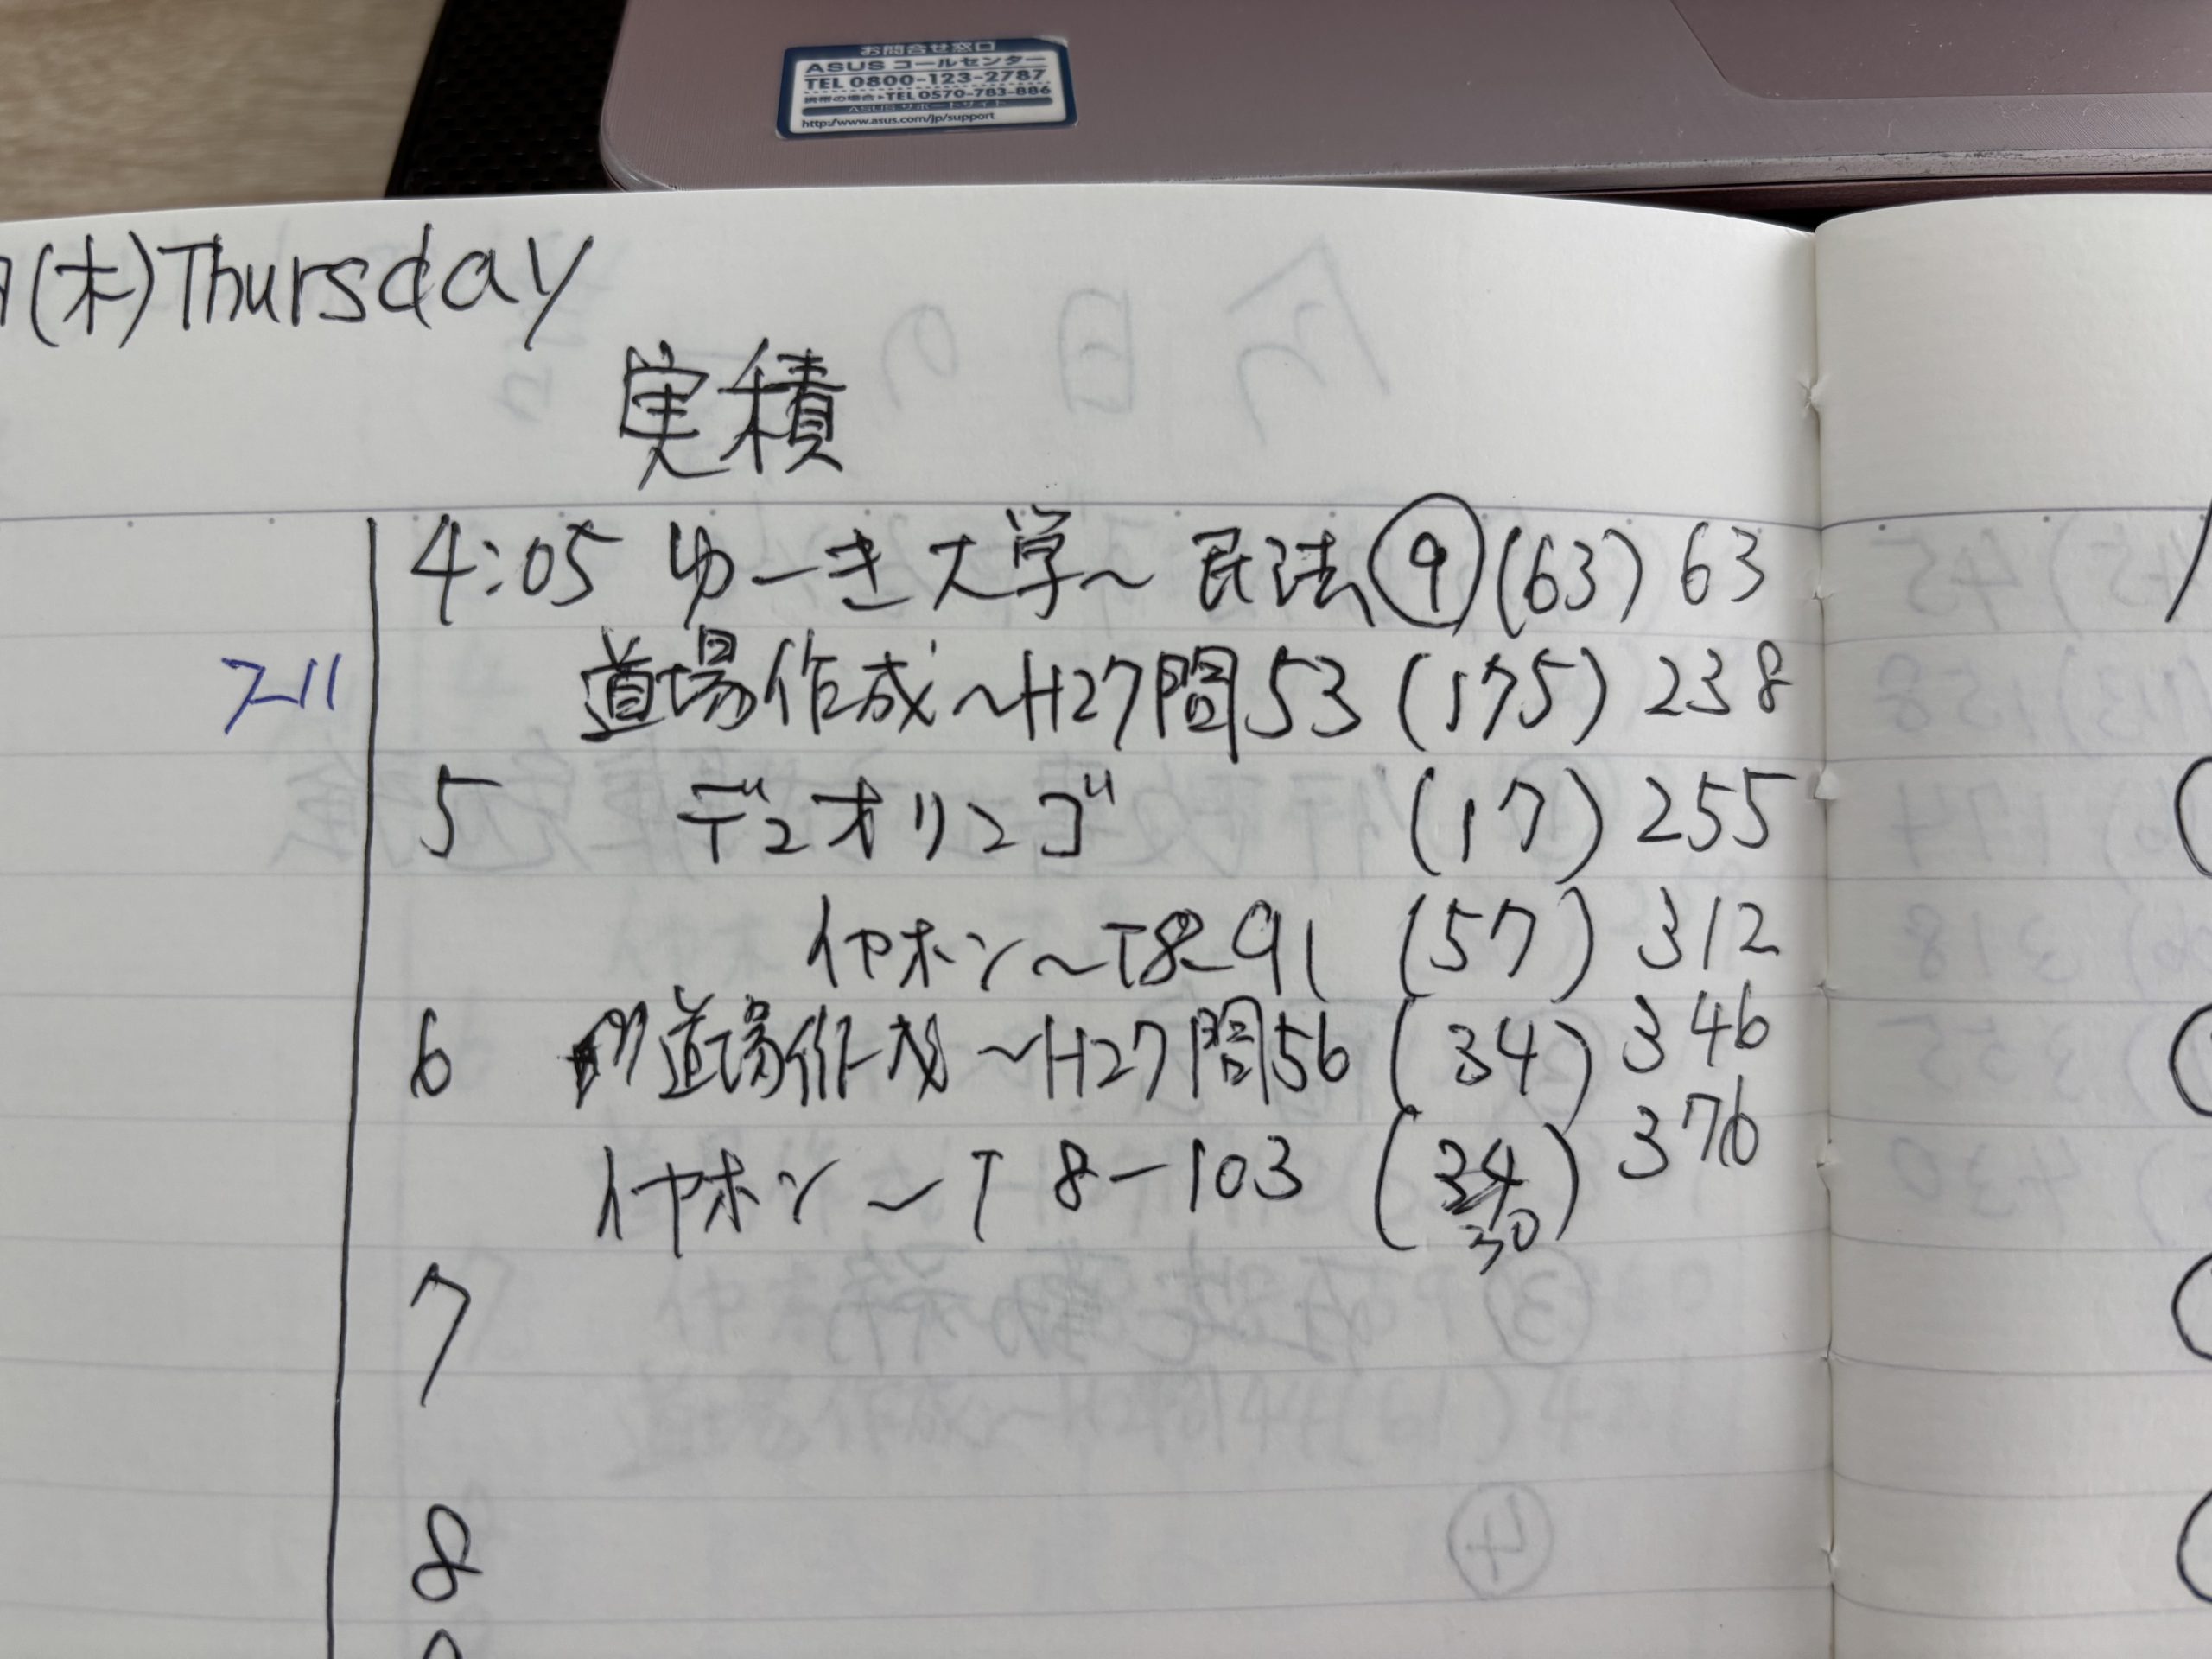 お問合せ窓口
ASUS コールセンター
TEL 0800-123-2787
携帯の場合▸TEL0570-783-886
ASUS サポートサイト
http://www.asus.com/jp/support
(木)Thursday
実積
4:05 ゆーき大学~民法⑨(63) 63
7-11 道場作成~H27問53 (175) 238
5 デュオリンゴ (17) 255
イヤホン~T8-91 (57) 312
6 道場作成~H27問56 (34) 346
イヤホン~T8-103 (30) 376
7
8